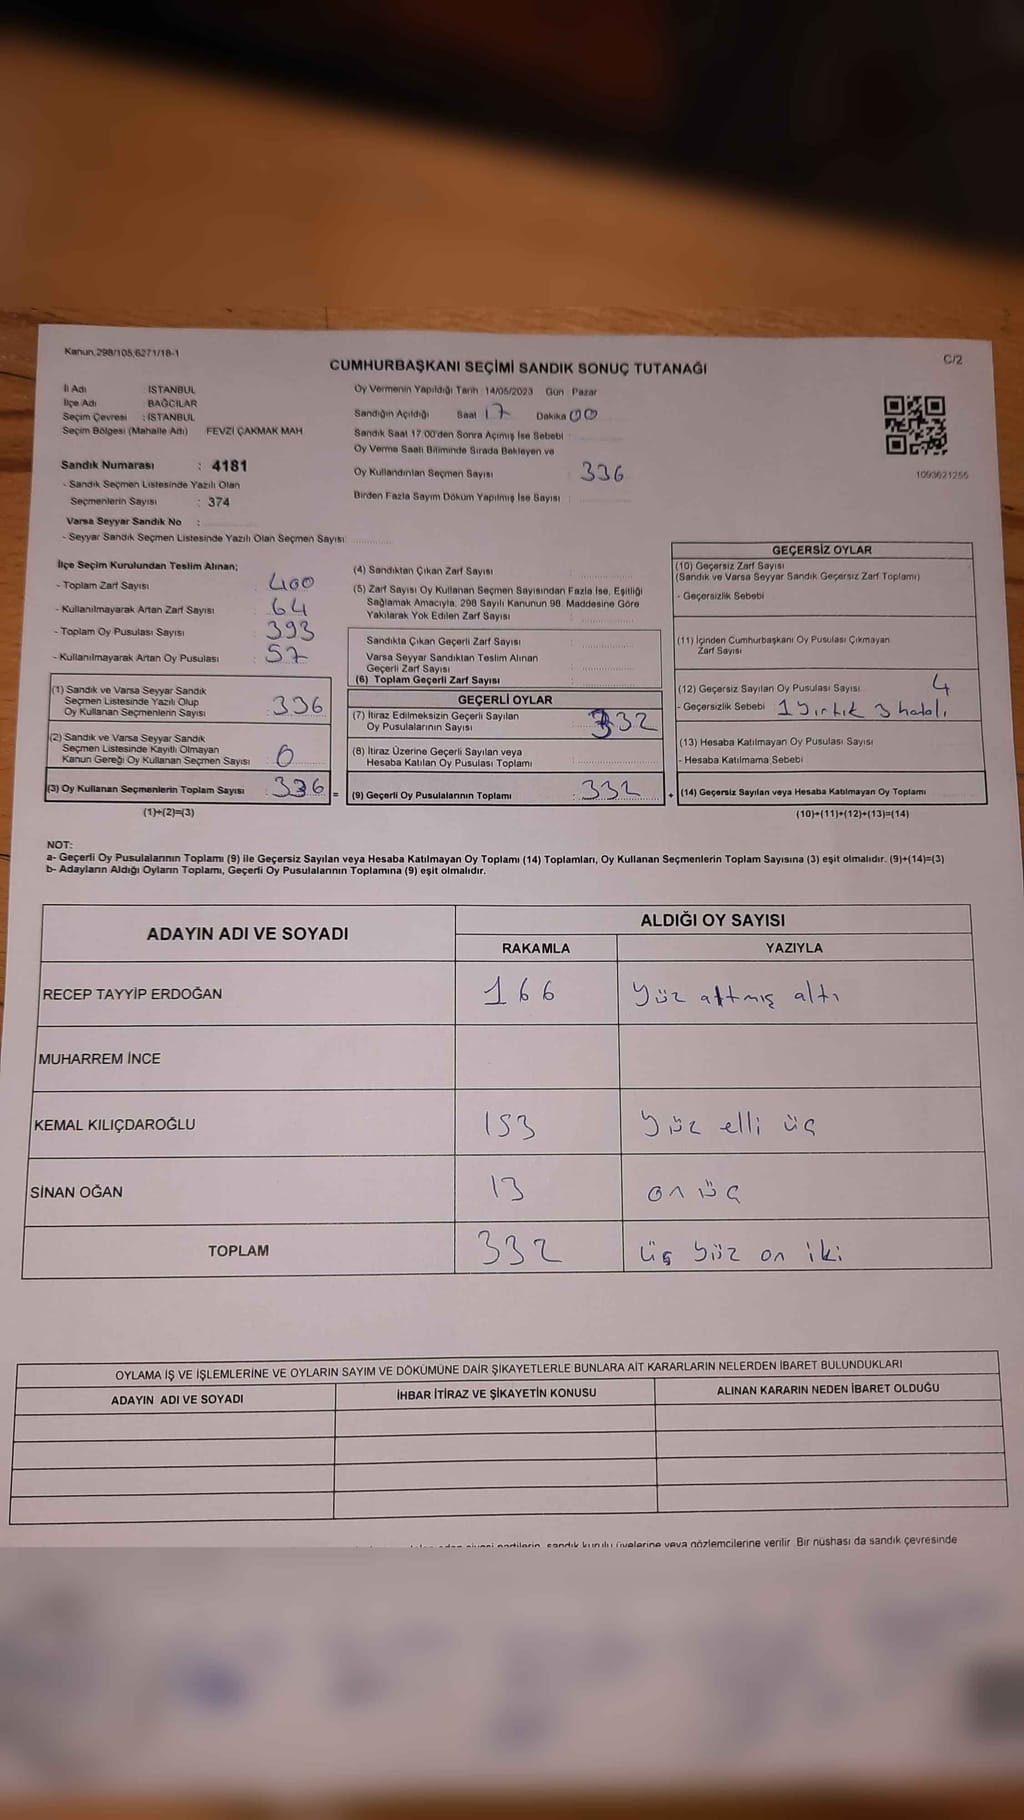 Kanun,298/105,6271/18-1
C/2
CUMHURBAŞKANI SEÇİMİ SANDIK SONUÇ TUTANAĞI
İl Adı İSTANBUL
İlçe Adı BAĞCILAR
Seçim Çevresi : İSTANBUL
Seçim Bölgesi (Mahalle Adı) FEVZİ ÇAKMAK MAH.
Sandık Numarası : 4181
- Sandık Seçmen Listesinde Yazılı Olan
Seçmenlerin Sayısı : 374
Varsa Seyyar Sandık No :
- Seyyar Sandık Seçmen Listesinde Yazılı Olan Seçmen Sayısı:
Oy Vermenin Yapıldığı Tarih 14/05/2023 Gün : Pazar
Sandığın Açıldığı Saat 17 Dakika 00
Sandık Saat 17:00'den Sonra Açmış İse Sebebi :
Oy Verme Saati Bitiminde Sırada Bekleyen ve
Oy Kullandırılan Seçmen Sayısı : 336
Birden Fazla Sayım Döküm Yapılmış İse Sayısı :
1093621256
İlçe Seçim Kurulundan Teslim Alınan;
- Toplam Zarf Sayısı : 400
- Kullanılmayarak Artan Zarf Sayısı : 64
- Toplam Oy Pusulası Sayısı : 393
- Kullanılmayarak Artan Oy Pusulası : 57
(1) Sandık ve Varsa Seyyar Sandık
Seçmen Listesinde Yazılı Olup
Oy Kullanan Seçmenlerin Sayısı : 336
(2) Sandık ve Varsa Seyyar Sandık
Seçmen Listesinde Kayıtlı Olmayan
Kanun Gereği Oy Kullanan Seçmen Sayısı : 0
(3) Oy Kullanan Seçmenlerin Toplam Sayısı : 336
(1)+(2)=(3)
(4) Sandıktan Çıkan Zarf Sayısı :
(5) Zarf Sayısı Oy Kullanan Seçmen Sayısından Fazla İse, Eşitliği
Sağlamak Amacıyla, 298 Sayılı Kanunun 98. Maddesine Göre
Yakılarak Yok Edilen Zarf Sayısı :
Sandıkta Çıkan Geçerli Zarf Sayısı :
Varsa Seyyar Sandıktan Teslim Alınan
Geçerli Zarf Sayısı :
(6) Toplam Geçerli Zarf Sayısı :
GEÇERLİ OYLAR
(7) İtiraz Edilmeksizin Geçerli Sayılan
Oy Pusulalarının Sayısı : 332
(8) İtiraz Üzerine Geçerli Sayılan veya
Hesaba Katılan Oy Pusulası Toplamı :
= (9) Geçerli Oy Pusulalarının Toplamı : 332
GEÇERSİZ OYLAR
(10) Geçersiz Zarf Sayısı
(Sandık ve Varsa Seyyar Sandık Geçersiz Zarf Toplamı)
- Geçersizlik Sebebi
(11) İçinden Cumhurbaşkanı Oy Pusulası Çıkmayan
Zarf Sayısı
(12) Geçersiz Sayılan Oy Pusulası Sayısı 4
- Geçersizlik Sebebi 1 yırtık 3 hatalı
(13) Hesaba Katılmayan Oy Pusulası Sayısı
- Hesaba Katılmama Sebebi
+ (14) Geçersiz Sayılan veya Hesaba Katılmayan Oy Toplamı
(10)+(11)+(12)+(13)=(14)
NOT:
a- Geçerli Oy Pusulalarının Toplamı (9) ile Geçersiz Sayılan veya Hesaba Katılmayan Oy Toplamı (14) Toplamları, Oy Kullanan Seçmenlerin Toplam Sayısına (3) eşit olmalıdır. (9)+(14)=(3)
b- Adayların Aldığı Oyların Toplamı, Geçerli Oy Pusulalarının Toplamına (9) eşit olmalıdır.
ADAYIN ADI VE SOYADI ALDIĞI OY SAYISI
RAKAMLA YAZIYLA
RECEP TAYYİP ERDOĞAN 166 Yüz altmış altı
MUHARREM İNCE
KEMAL KILIÇDAROĞLU 153 Yüz elli üç
SİNAN OĞAN 13 on üç
TOPLAM 332 üç yüz on iki
OYLAMA İŞ VE İŞLEMLERİNE VE OYLARIN SAYIM VE DÖKÜMÜNE DAİR ŞİKAYETLERLE BUNLARA AİT KARARLARIN NELERDEN İBARET BULUNDUKLARI
ADAYIN ADI VE SOYADI İHBAR İTİRAZ VE ŞİKAYETİN KONUSU ALINAN KARARIN NEDEN İBARET OLDUĞU
siyasi partilerin, sandık kurulu üyelerine veya gözlemcilerine verilir. Bir nüshası da sandık çevresinde